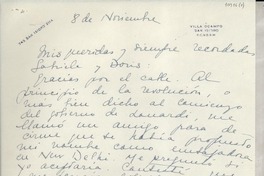 8 de Noviembre
VILLA OCAMPO
SAN ISIDRO
Mis queridas y siempre recordadas
Gabriela y Doris:
Gracias por el cable. Al
principio de la revolución, o
mas bien dicho al comienzo
del gobierno de Lonardi, me
llamó un amigo para de-
cirme que se había propuesto
mi nombre como embajadora
en New Delhi. Me preguntó si
yo aceptaría. Contesté que